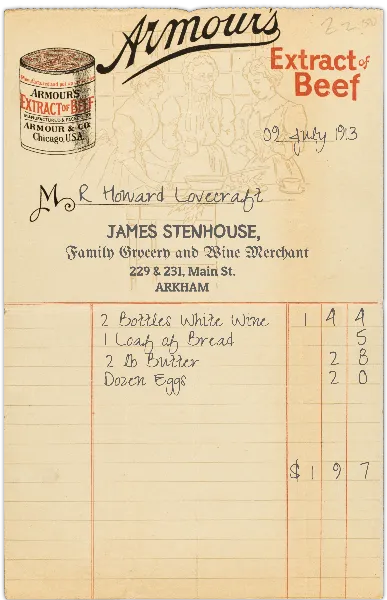 Armour's
22.50
Extract of
Beef
ARMOUR'S
EXTRACT OF BEEF
ARMOUR & CO.
Chicago, USA.
02 July 1913
Mr Howard Lovecraft
JAMES STENHOUSE,
Family Grocery and Wine Merchant
229 & 231, Main St.
ARKHAM
2 Bottles White Wine 1 4 4
1 Loaf of Bread 5
2 lb Butter 2 8
Dozen Eggs 2 0
$ 1 9 7